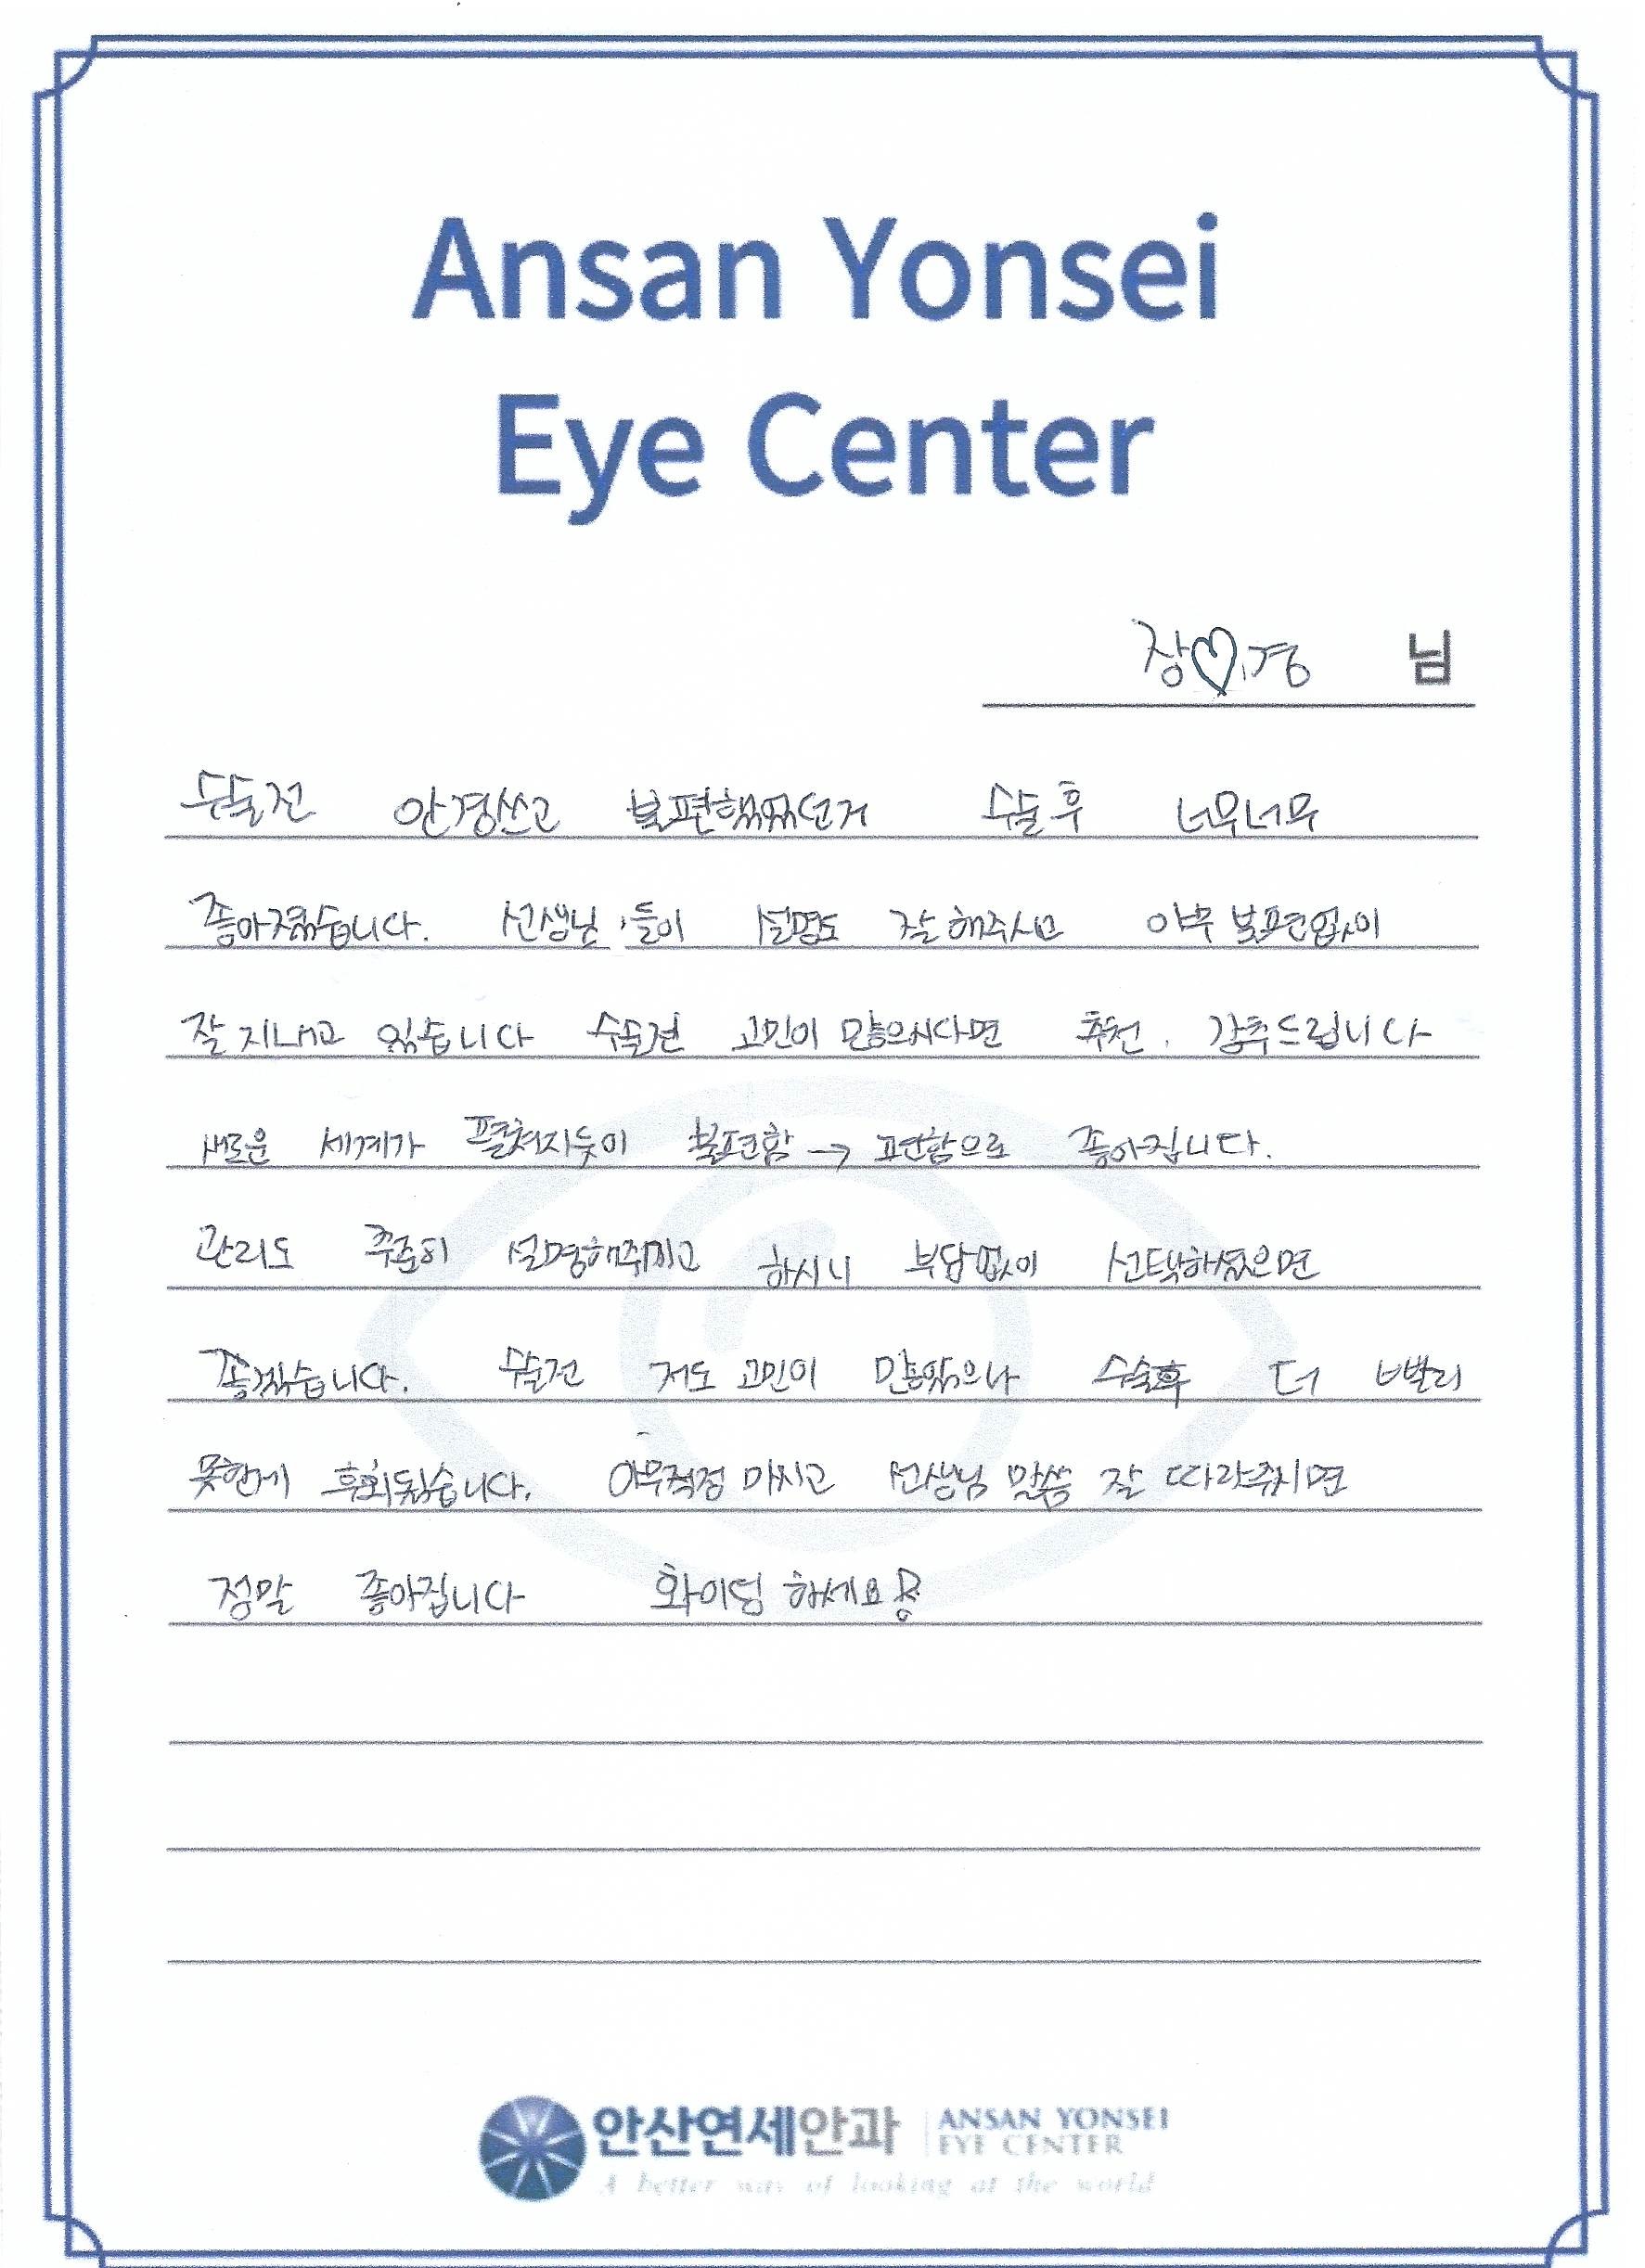 Ansan Yonsei
Eye Center
장♡경 님
수술전 안경쓰고 불편했던거 수술후 너무너무
좋아졌습니다. 선생님들이 설명도 잘해주시고 아무 불편없이
잘 지내고 있습니다 수술전 고민이 많으시다면 추천. 강추드립니다
새로운 세계가 펼쳐지듯이 불편함 → 편함으로 좋아집니다.
관리도 꾸준히 설명해주시고 하시니 부담없이 선택하셨으면
좋겠습니다. 수술전 저도 고민이 많았으나 수술후 더 빨리
못한게 후회됬습니다. 아무걱정 마시고 선생님 말씀 잘 따라주시면
정말 좋아집니다 화이팅 하세요
안산연세안과 ANSAN YONSEI
EYE CENTER
A better way of looking at the world